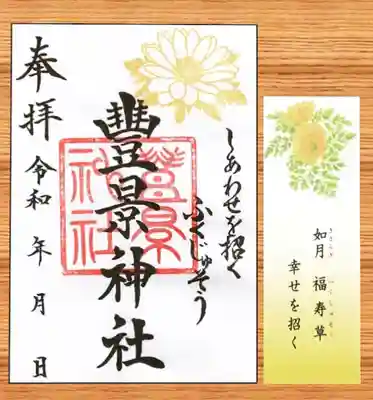 奉拝
令和 年 月 日
豐景神社
豐景神社
しあわせを招く
ふくじゅそう
如月 福寿草
きさらぎ ふくじゅそう
幸せを招く